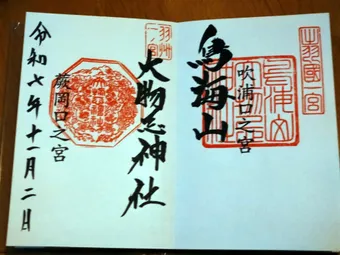 出羽國一宮
鳥海山
吹浦口之宮
羽州
一ノ宮
大物忌神社
蕨岡口之宮
令和七年十一月二日